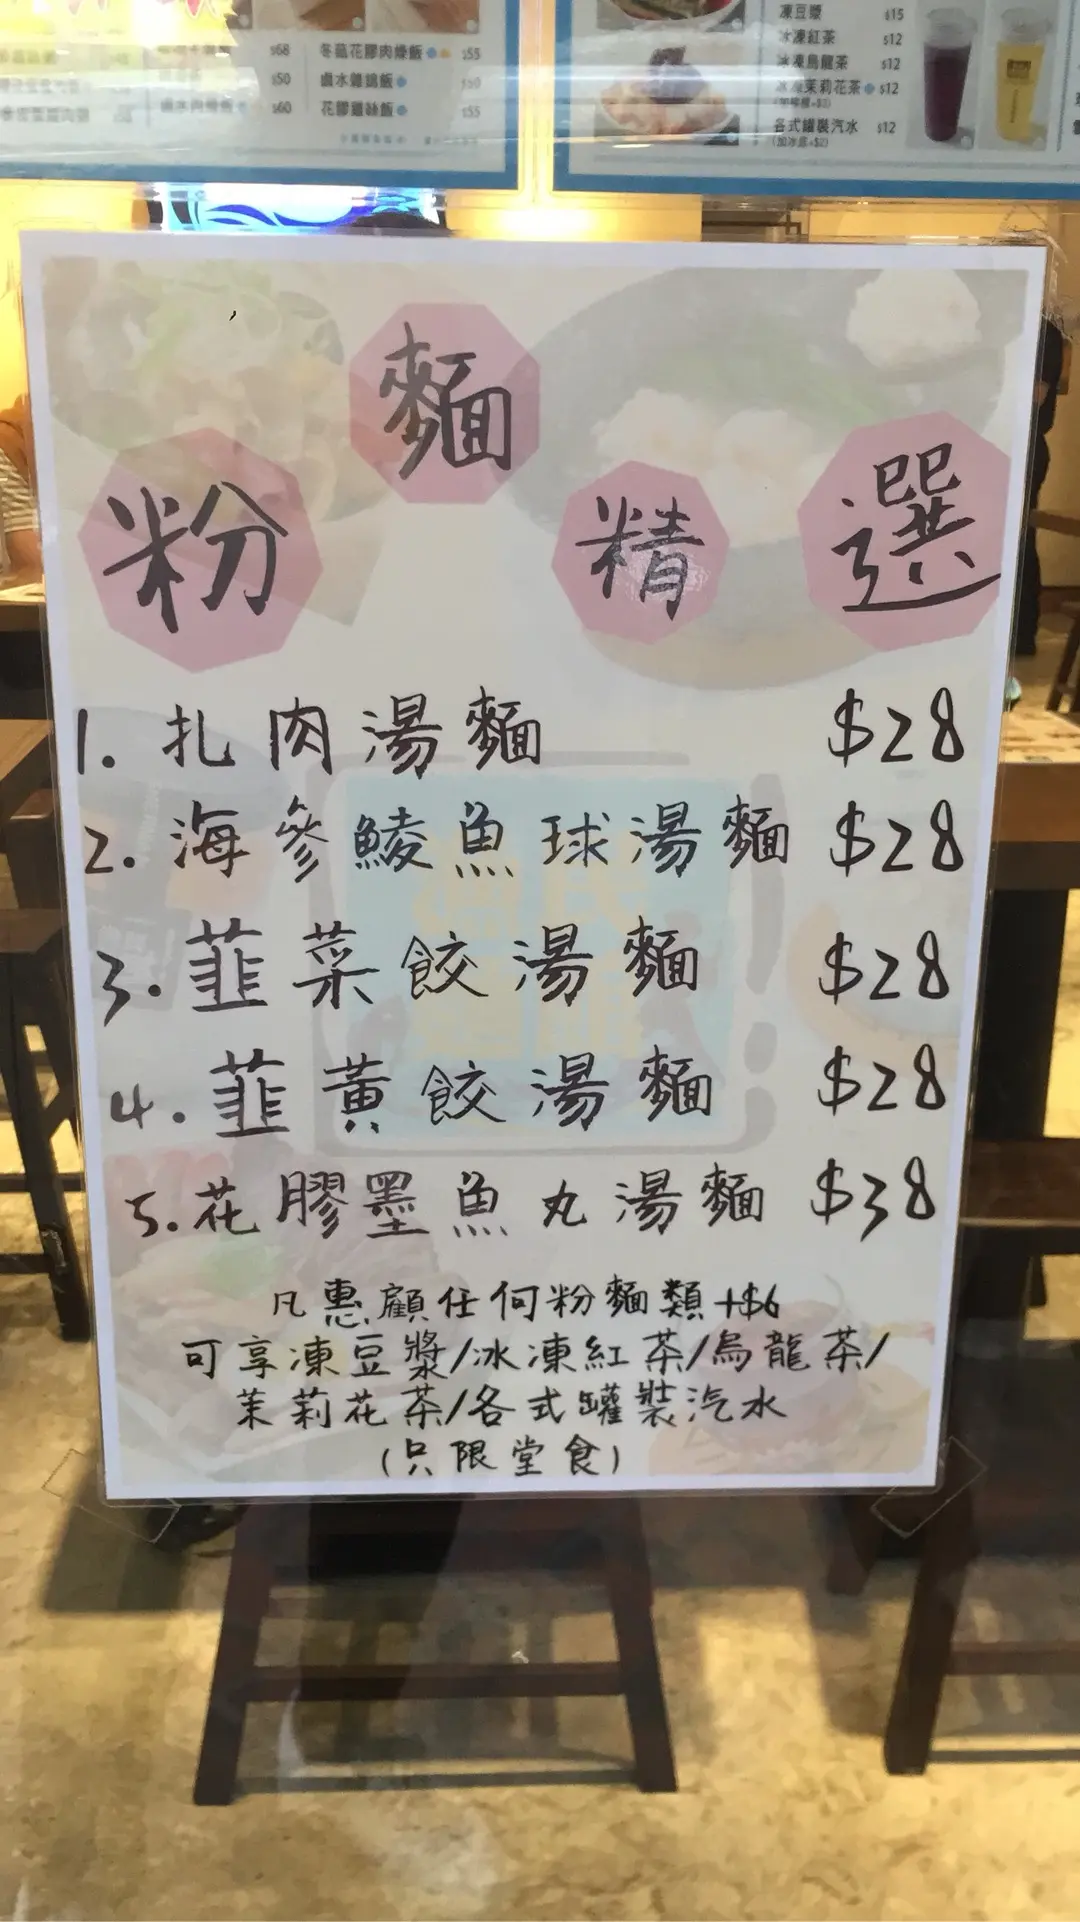 $68
$50
$60
冬菇花膠肉燥飯 $55
鹵水雞鎚飯 $50
花膠雞絲飯 $55
凍豆漿 $15
冰凍紅茶 $12
冰凍烏龍茶 $12
冰凍茉莉花茶 $12
各式罐裝汽水 $12
(加冰底+$2)
粉麵精選
1. 扎肉湯麵 $28
2. 海參鯪魚球湯麵 $28
3. 韮菜餃湯麵 $28
4. 韮黃餃湯麵 $28
5. 花膠墨魚丸湯麵 $38
凡惠顧任何粉麵類+$6
可享凍豆漿/冰凍紅茶/烏龍茶/
茉莉花茶/各式罐裝汽水
(只限堂食)